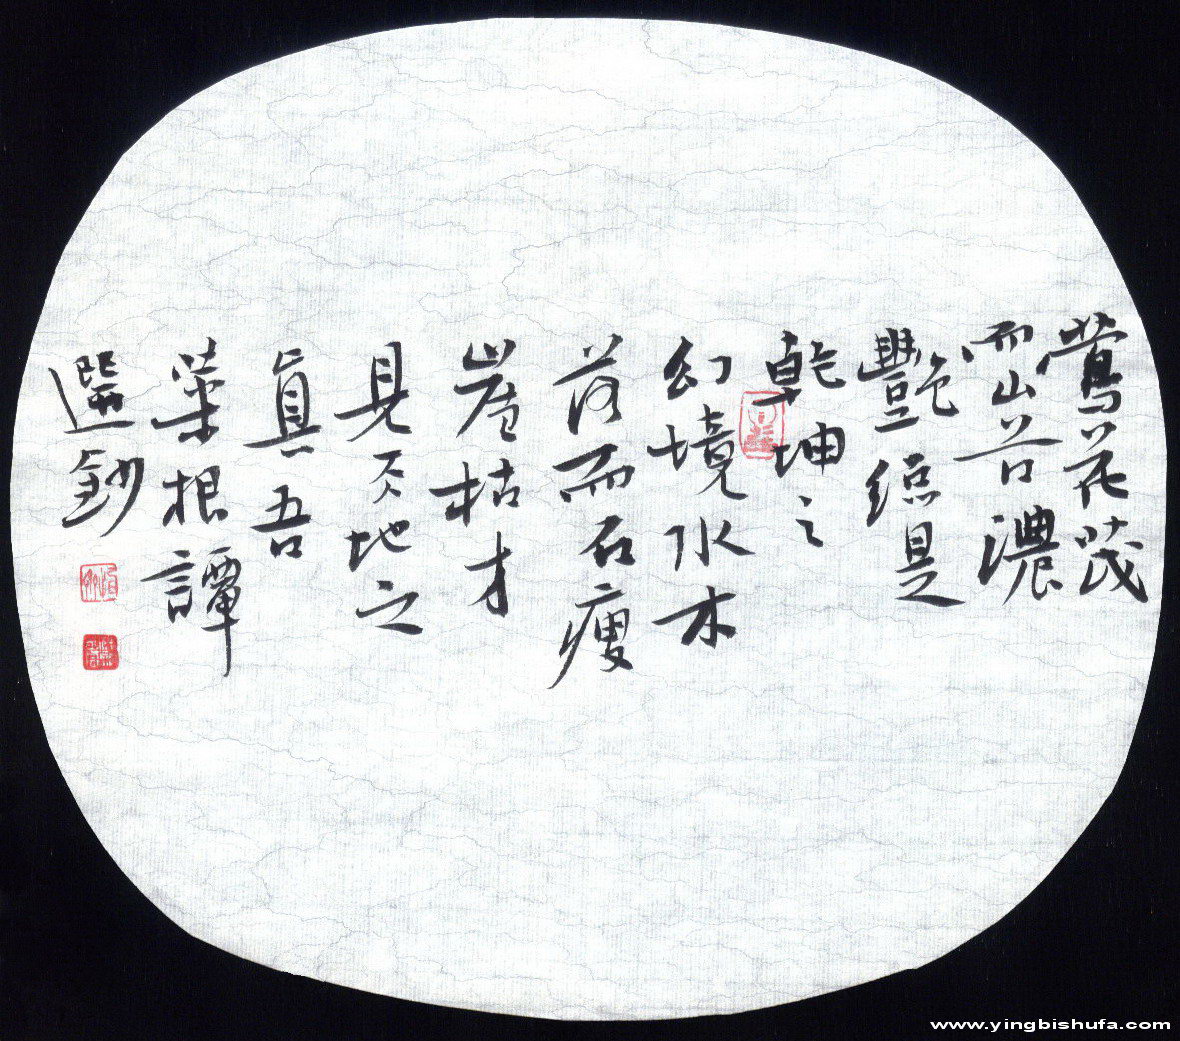 鶯花茂
而山谷濃
艷總是
乾坤之
幻境水木
落而石瘦
崖枯才
見天地之
真吾
菜根譚
選鈔
www.yingbishufa.com